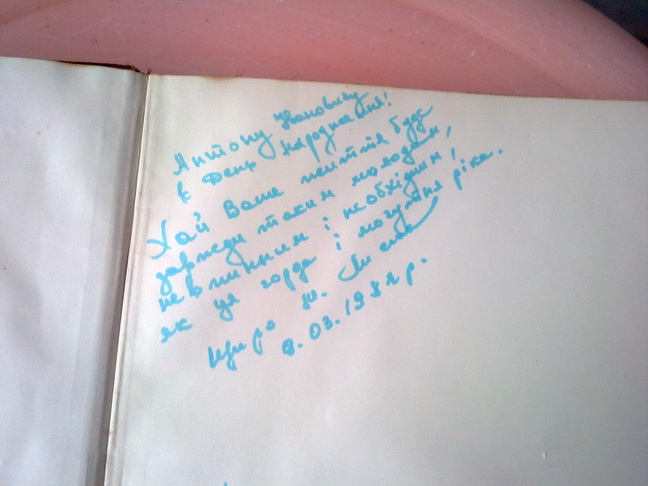 Антону Івановичу
в День народження!
Хай Ваше життя буде
завжди таким молодим,
невпинним і необхідним,
як ця горда і могутня ріка.
Щиро
8.03.1981 р.